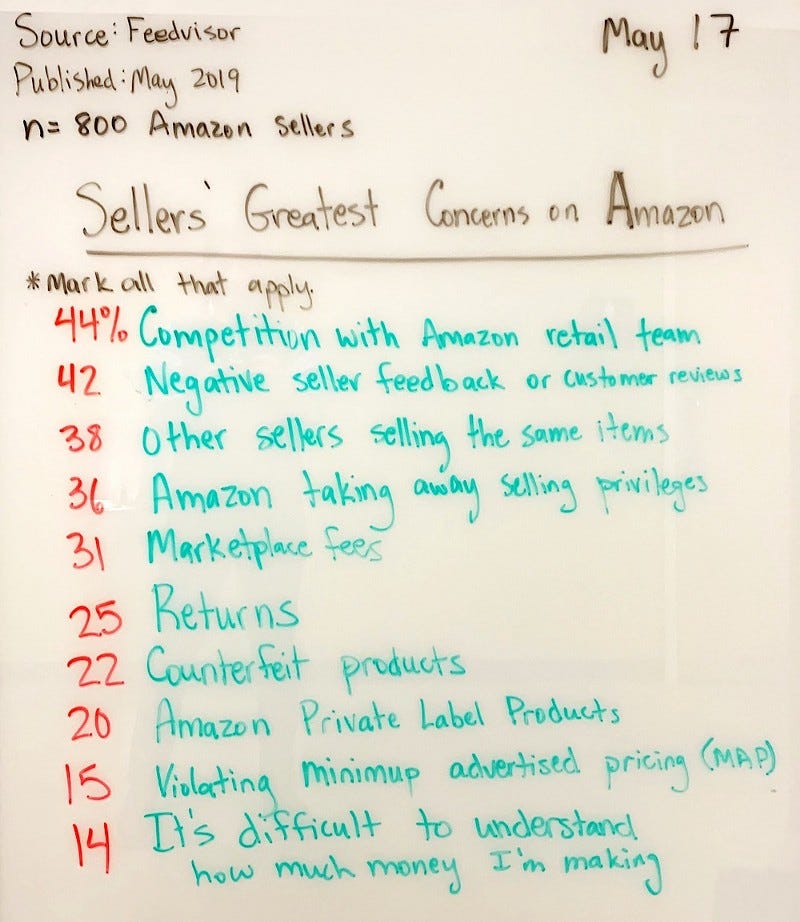 Source: Feedvisor
May 17
Published: May 2019
n= 800 Amazon Sellers
Sellers' Greatest Concerns on Amazon
*Mark all that apply.
44% Competition with Amazon retail team
42 Negative seller feedback or customer reviews
38 Other sellers selling the same items
36 Amazon taking away selling privileges
31 Marketplace fees
25 Returns
22 Counterfeit products
20 Amazon Private Label Products
15 Violating minimup advertised pricing (MAP)
14 It's difficult to understand
how much money I'm making